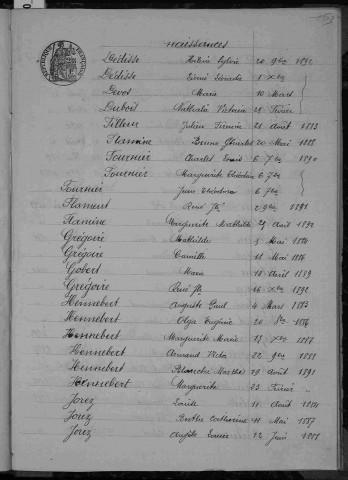 naissances
Hélène Sylvie 20 9bre 1892
1 Xbre
Marie 10 Mars
Dubois Nathalie Victoria 28 Février
Julien Firmin 21 Août 1883
Flamine Bruno Ghislet 20 Mai 1888
Fournier Charles Louis 6 7bre 1890
Fournier Marguerite Théodora 6 7bre
Fournier Jean Théodore 6 7bre
Flament René Jh 9bre 1891
Flamine Marguerite Mathilde 27 Avril 1892
Grégoire Mathilde 5 Mai 1884
Grégoire Camille 11 Mai 1886
Gobert Marie 10 Avril 1889
Grégoire René Jh 16 Xbre 1892
Hennebert Auguste Paul 4 Mars 1883
Hennebert Olga Eugénie 20 8bre 1886
Hennebert Marguerite Marie 23 Xbre 1887
Hennebert Armand Victor 22 9bre 1888
Hennebert Blanche Marthe 29 Août 1891
Hennebert Marguerite 23 Février
Jorez Louise 11 Août 1884
Jorez Berthe Catherine 11 Mai 1887
Jorez Angèle Louise 12 Juin 1888